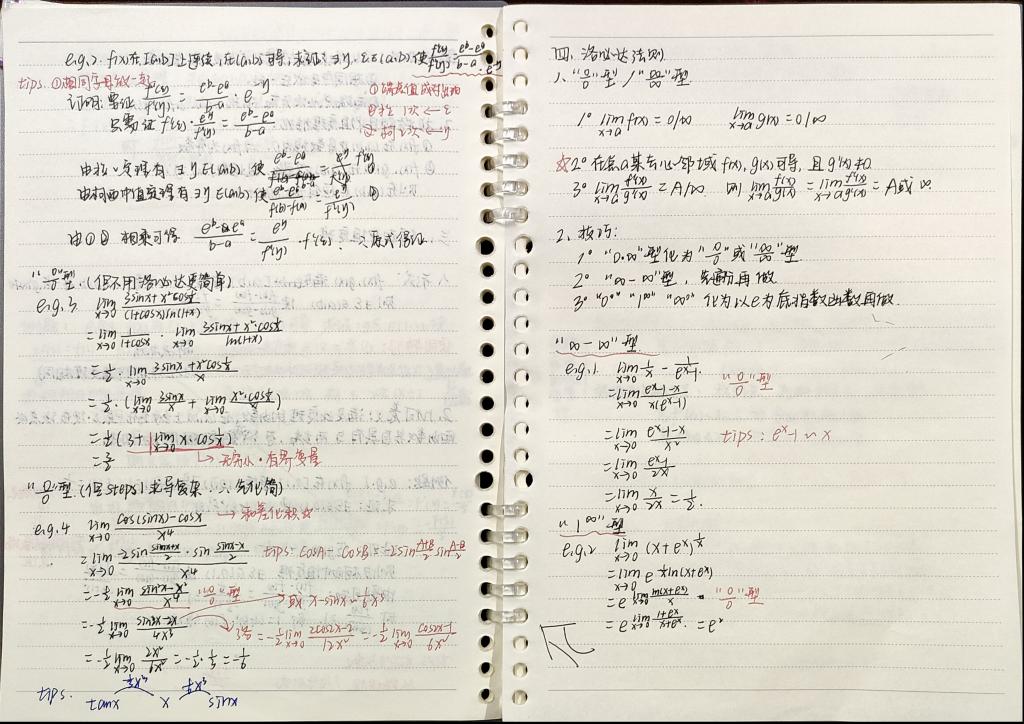 e.g.2 f(x)在[a,b]上连续,在(a,b)可导,求证:∃η,ξ∈(a,b)使 f'(ξ)/f'(η) = (e^b-e^a)/(b-a) · e^-η
tips. ①相同字母放一起
①端点值成对出现
证明:要证 f'(ξ)/f'(η) = (e^b-e^a)/(b-a) · e^-η
②拉1次←ξ
只需证 f'(ξ)·e^η/f'(η) = (e^b-e^a)/(b-a)
③柯1次←η
由柯西中值定理有∃η∈(a,b)使 (e^b-e^a)/(f(b)-f(a)) = e^η/f'(η) ②
由①②相乘可得 (e^b-e^a)/(b-a) = e^η/f'(η) · f'(ξ) ∴原式得证
"0/0"型 (但不用洛必达更简单)
e.g.3 lim x→0 (3sinx+x²cos1/x)/((1+cosx)ln(1+x))
=lim x→0 1/(1+cosx) lim x→0 (3sinx+x²·cos1/x)/ln(1+x)
=1/2·lim x→0 (3sinx+x²cos1/x)/x
=1/2·(lim x→0 3sinx/x + lim x→0 x²·cos1/x /x)
=1/2(3+lim x→0 x·cos1/x)
=3/2 →无穷小·有界变量
"0/0"型 (但steps1求导复杂∴先化简)
e.g.4 lim x→0 (cos(sinx)-cosx)/x⁴ →和差化积☆
=lim x→0 (-2sin (sinx+x)/2 · sin (sinx-x)/2)/x⁴ tips: cosA-cosB=-2sin (A+B)/2 sin (A-B)/2
=-1/2 lim x→0 (sin²x-x²)/x⁴ "0/0"型 →或 x-sinx~1/6x³
=-1/2 lim x→0 (sin2x-2x)/4x³ =-1/2 lim x→0 (2cos2x-2)/12x² =-1/2 lim x→0 (cos2x-1)/6x²
=-1/2 lim x→0 2x²/6x² =-1/2·1/3=-1/6
tips. 1/2x³ 1/6x³
tanx x sinx
四、洛必达法则
1、"0/0"型/"∞/∞"型
1° lim x→a f(x)=0/∞ lim x→a g(x)=0/∞
☆2° 在点a某去心邻域f(x),g(x)可导,且g'(x)≠0
3° lim x→a f'(x)/g'(x)=A/∞ 则 lim x→a f(x)/g(x)=lim x→a f'(x)/g'(x)=A或∞
2、技巧:
1° "0·∞"型化为"0/0"或"∞/∞"型
2° "∞-∞"型,先通分再做
3° "0⁰" "1^∞" "∞⁰" 化为以e为底指数函数再做.
"∞-∞"型
e.g.1 lim x→0 1/x - 1/(e^x-1). "0/0"型
=lim x→0 (e^x-1-x)/(x(e^x-1))
=lim x→0 (e^x-1-x)/x² tips: e^x-1~x
=lim x→0 (e^x-1)/2x
=lim x→0 x/2x=1/2.
"1^∞"型
e.g.2 lim x→0 (x+e^x)^1/x
=lim x→0 e^1/x ln(x+e^x)
=e^lim x→0 ln(x+e^x)/x "0/0"型
=e^lim x→0 (1+e^x)/(x+e^x) =e²